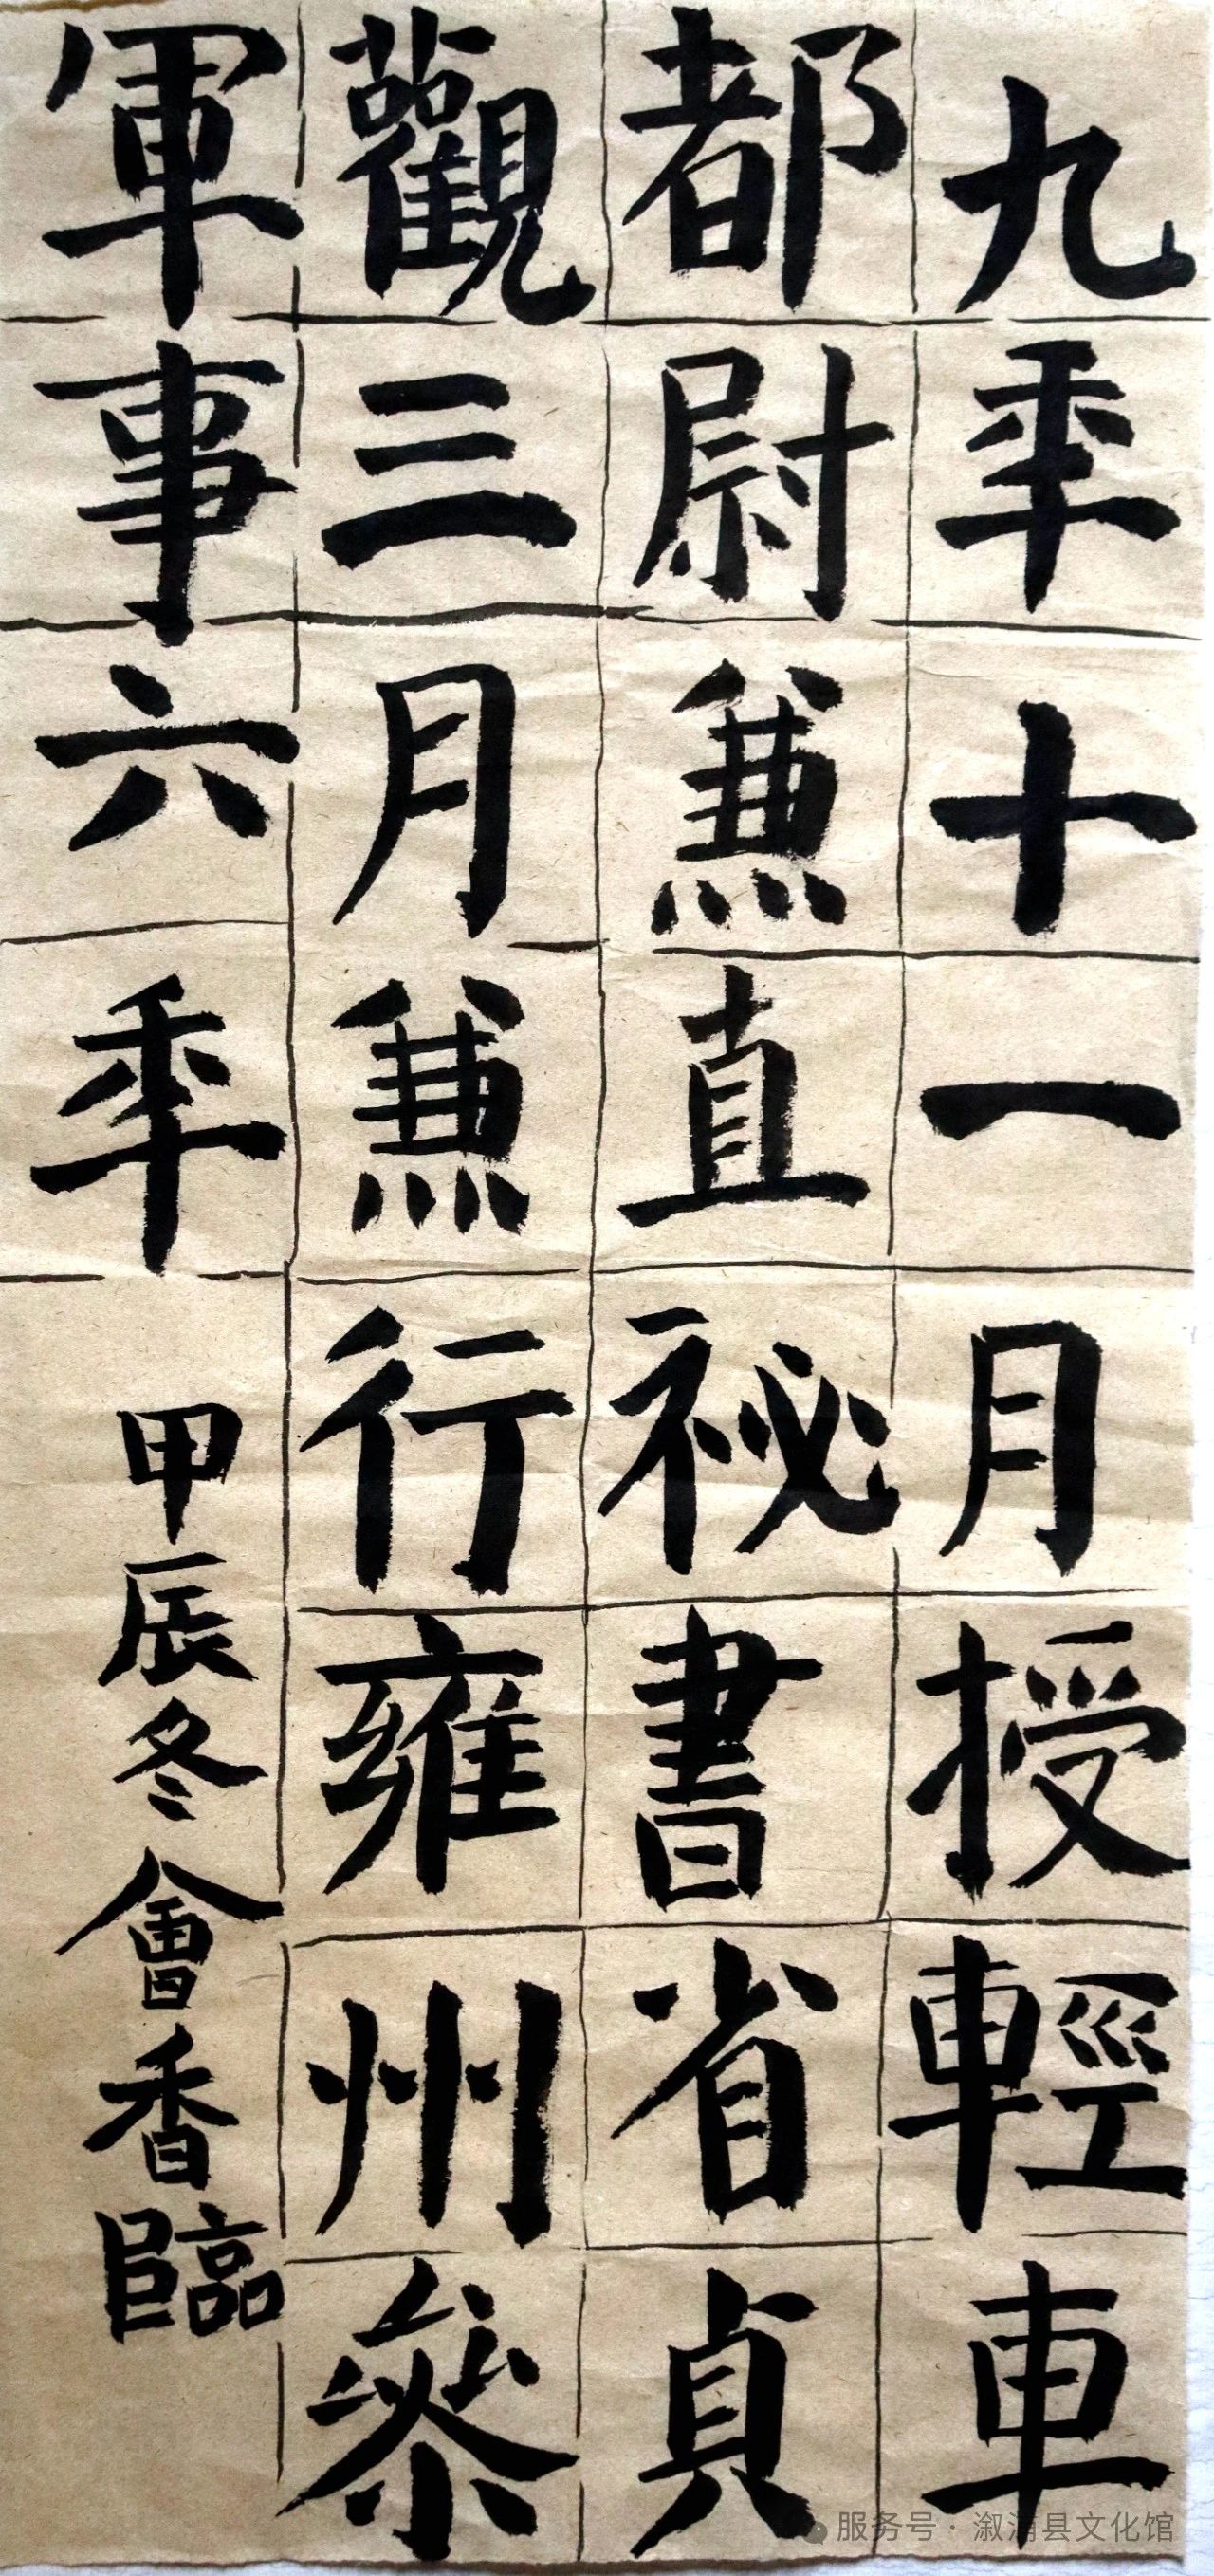 九秊十一月授輕車
都尉兼直祕書省貞
觀三月兼行雍州叅
軍事六秊
甲辰冬會香臨
服务号·溆浦县文化馆